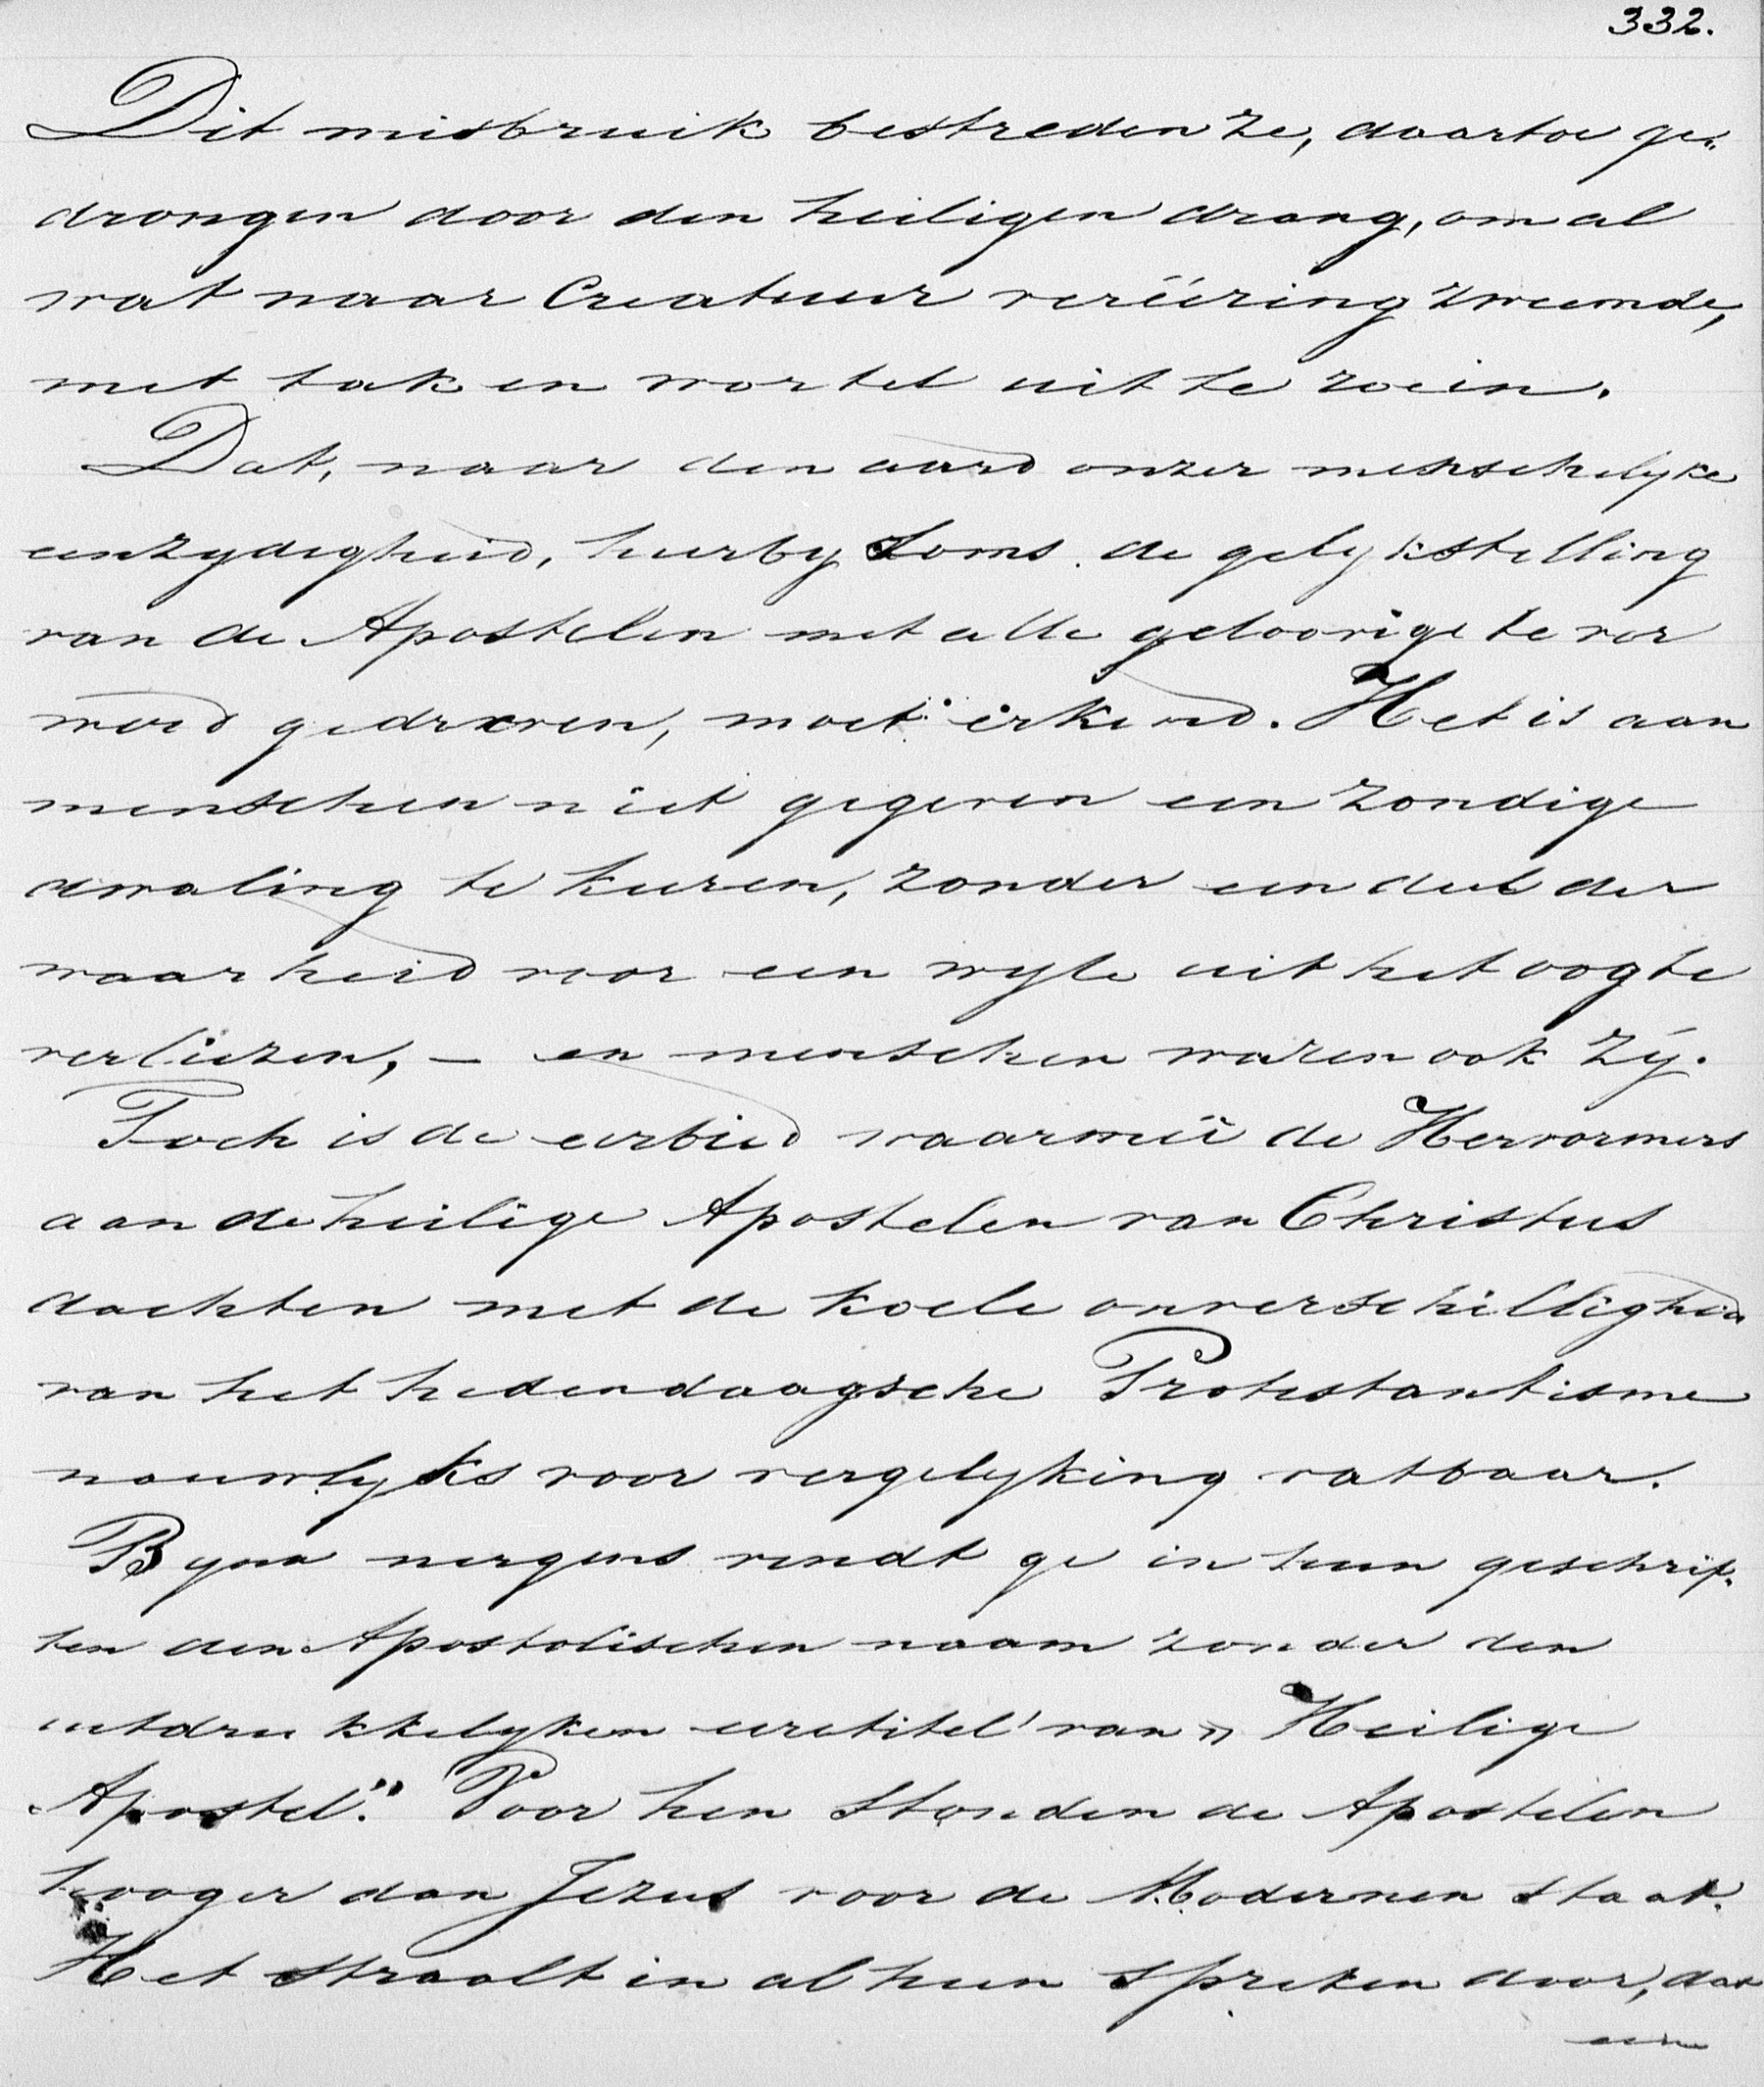 332.
Dit misbruik bestreden ze, daartoe ge„
drongen door den heiligen drang, om al
wat naar Creatuur vereering zweemde,
met tak en wortel uit te roeien.
Dat, naar den aard onzer menschelyke
eenzydigheid, hierby soms de gelykstelling
van de Apostelen met alle geloovige te ver
werd gedreven, moet erkend. Het is aan
menschen niet gegeven een zondige
dwaling te keeren, zonder een deel der
waarheid voor een wyle uit het oog te
verliezen, – en menschen waren ook zÿ.
Toch is de eerbied waarmeê de Hervormers
aan de heilige Apostelen van Christus
dachten met de koele onverschilligheid
van het hedendaagsche Protestantisme
nauwlyks voor vergelyking vatbaar.
Byna nergens vindt ge in hun geschrif„
ten den Apostolischen naam zonder den
uitdrukkelyken eeretitel van „Heilige
Apostel". Voor hen stonden de Apostelen
hooger dan Jezus voor de Modernen staat.
Het straalt in al hun spreken door, dat
een